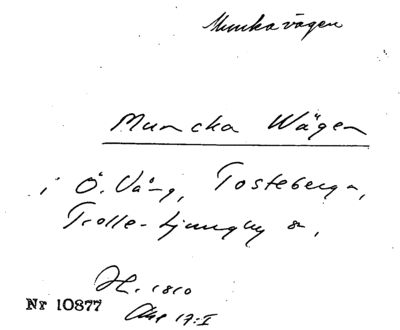 Munkavägen
Muncka Wägen
i Ö. Vång, Tosteberga,
Trolle-Ljungby sn,
1810
Nr 10877
Akt 17:I